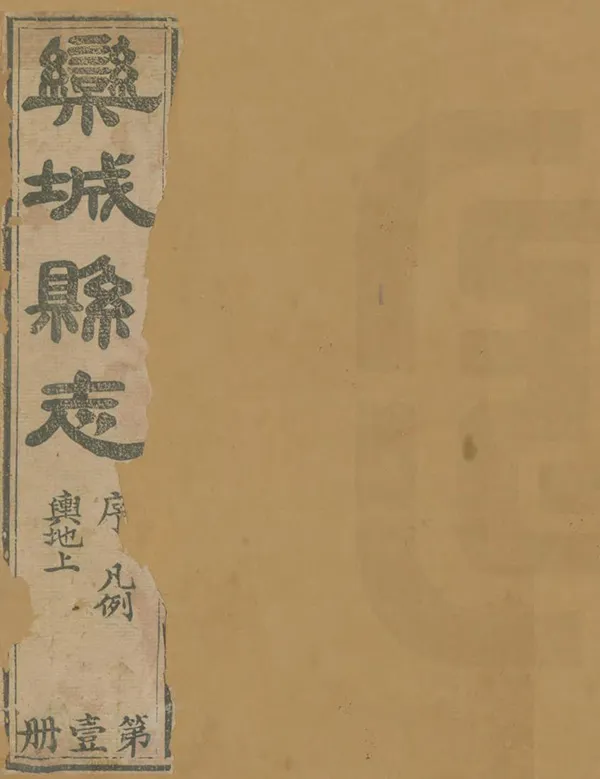 欒城縣志
序 凡例
輿地上
第壹册